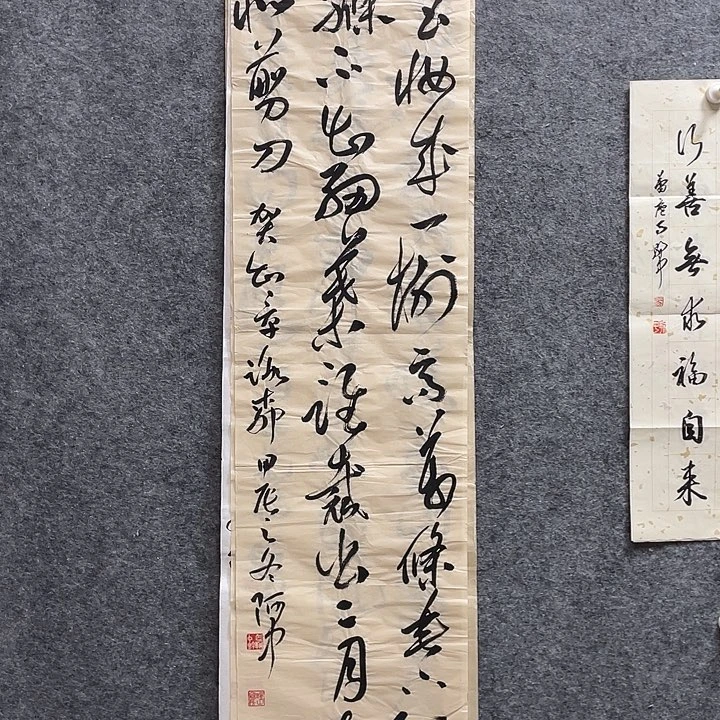 玉妝成一樹高萬條垂下
絛不知細葉誰裁出二月
似剪刀 賀知章詠柳 甲辰之冬
行善無求福自来